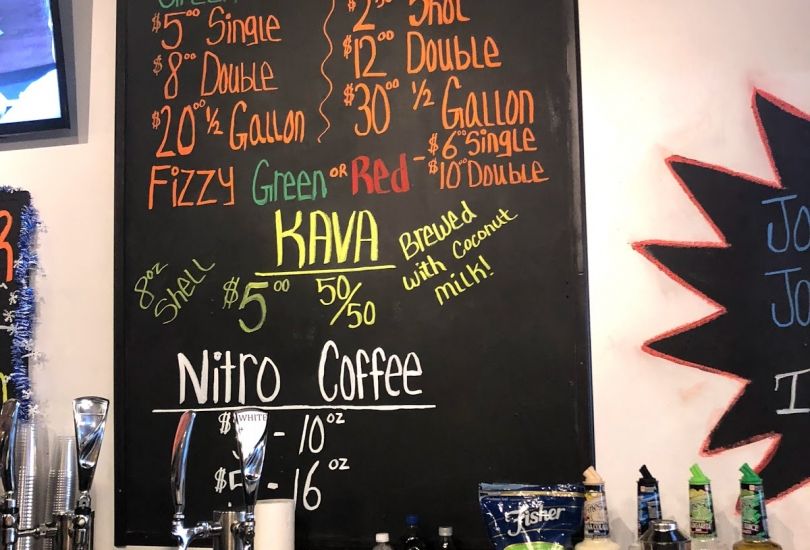 Green
$5⁰⁰ Single
$8⁰⁰ Double
$20⁰⁰ ½ Gallon
$2⁵⁰ Shot
$12⁰⁰ Double
$30⁰⁰ ½ Gallon
Fizzy Green OR Red - $6⁰⁰ Single
$10⁰⁰ Double
KAVA
8oz Shell
$5⁰⁰
50/50
Brewed with Coconut milk!
Nitro Coffee
- 10oz
$5 - 16oz
WHITE
Fisher